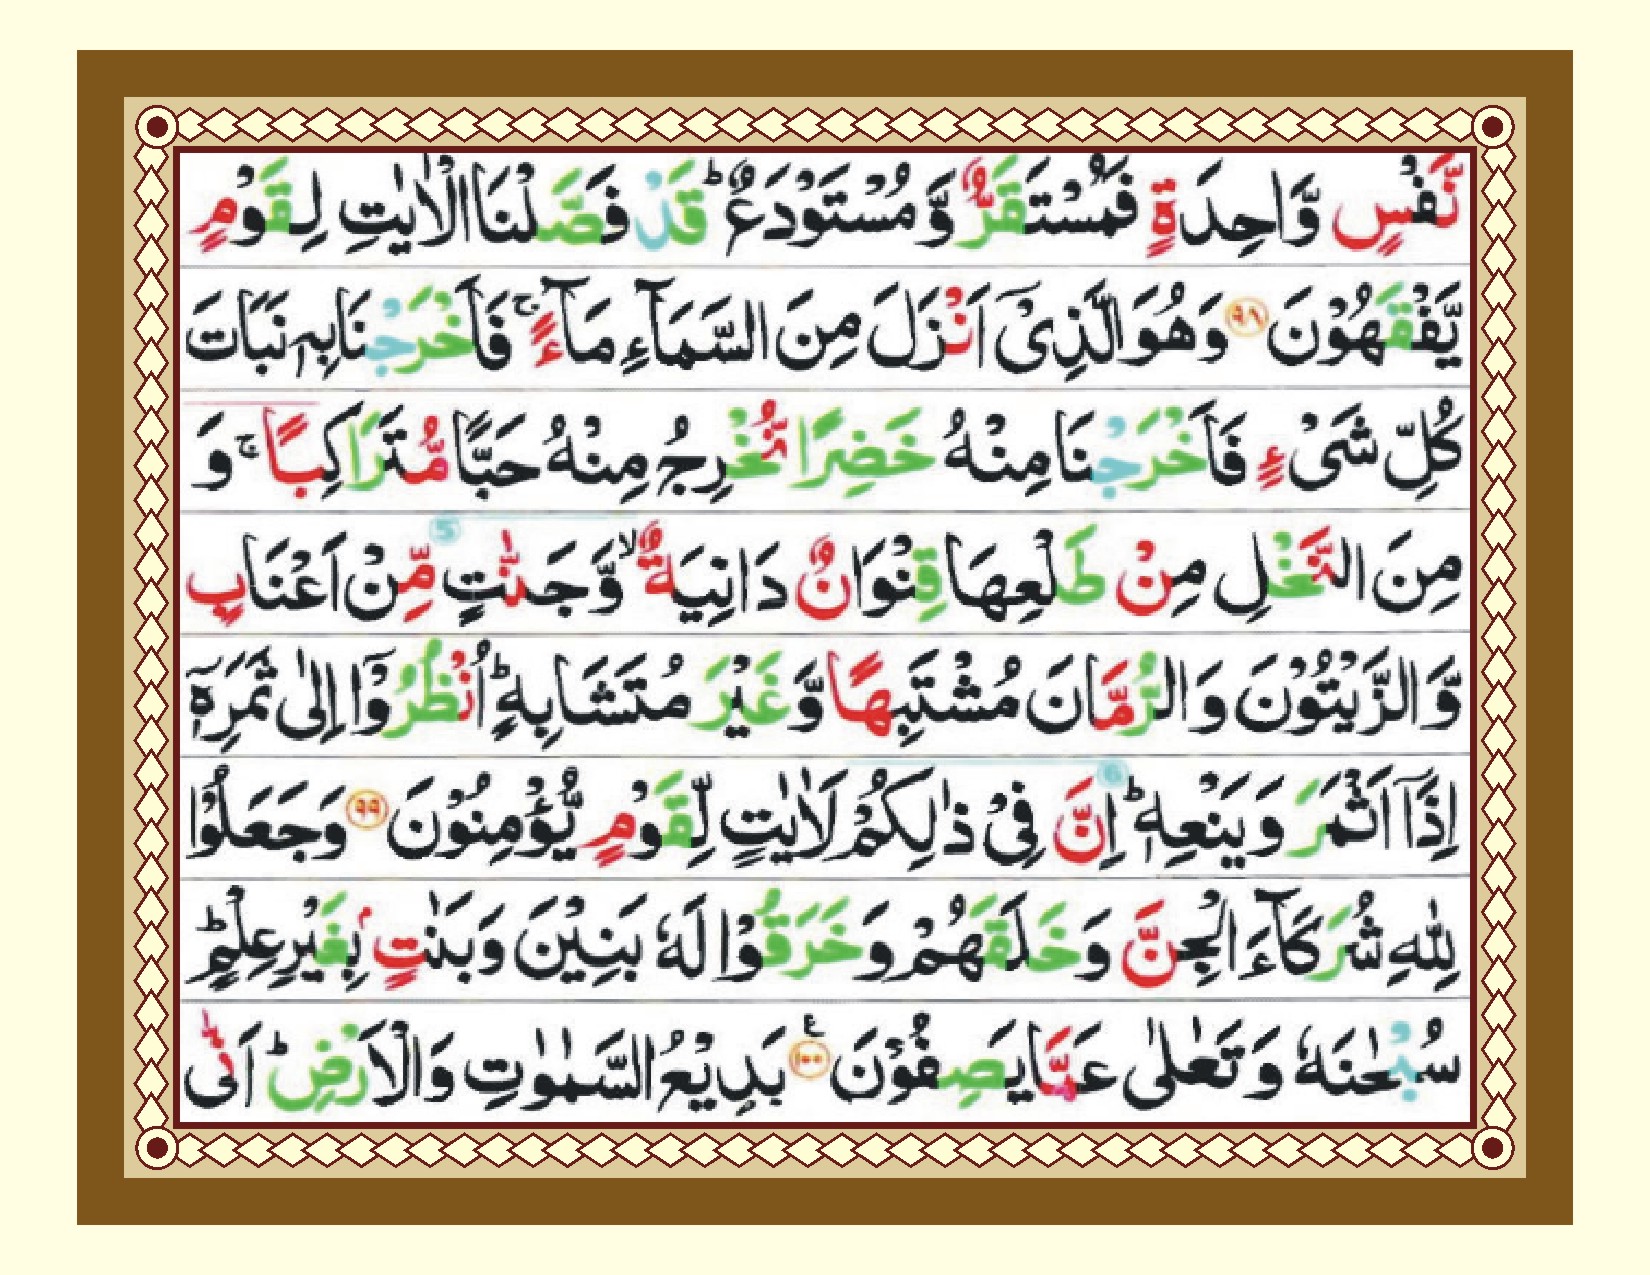 نَّفْسٍ وَّاحِدَةٍ فَمُسْتَقَرٌّ وَّ مُسْتَوْدَعٌ ؕ قَدْ فَصَّلْنَا الْاٰیٰتِ لِقَوْمٍ
یَّفْقَهُوْنَ ﴿۹۸﴾ وَهُوَ الَّذِیْۤ اَنْزَلَ مِنَ السَّمَآءِ مَآءً ۚ فَاَخْرَجْنَا بِهٖ نَبَاتَ
كُلِّ شَیْءٍ فَاَخْرَجْنَا مِنْهُ خَضِرًا نُّخْرِجُ مِنْهُ حَبًّا مُّتَرَاكِبًا ۚ وَ
5
مِنَ النَّخْلِ مِنْ طَلْعِهَا قِنْوَانٌ دَانِیَةٌ ۙ وَّجَنّٰتٍ مِّنْ اَعْنَابٍ
وَّ الزَّیْتُوْنَ وَ الرُّمَّانَ مُشْتَبِهًا وَّ غَیْرَ مُتَشَابِهٍ ؕ اُنْظُرُوْۤا اِلٰی ثَمَرِهٖۤ
6
اِذَاۤ اَثْمَرَ وَ یَنْعِهٖ ؕ اِنَّ فِیْ ذٰلِكُمْ لَاٰیٰتٍ لِّقَوْمٍ یُّؤْمِنُوْنَ ﴿۹۹﴾ وَجَعَلُوْا
لِلّٰهِ شُرَكَآءَ الْجِنَّ وَ خَلَقَهُمْ وَ خَرَقُوْا لَهٗ بَنِیْنَ وَ بَنٰتٍۭ بِغَیْرِ عِلْمٍ ؕ
سُبْحٰنَهٗ وَ تَعٰلٰی عَمَّا یَصِفُوْنَ ﴿۱۰۰﴾ ع بَدِیْعُ السَّمٰوٰتِ وَ الْاَرْضِ ؕ اَنّٰی